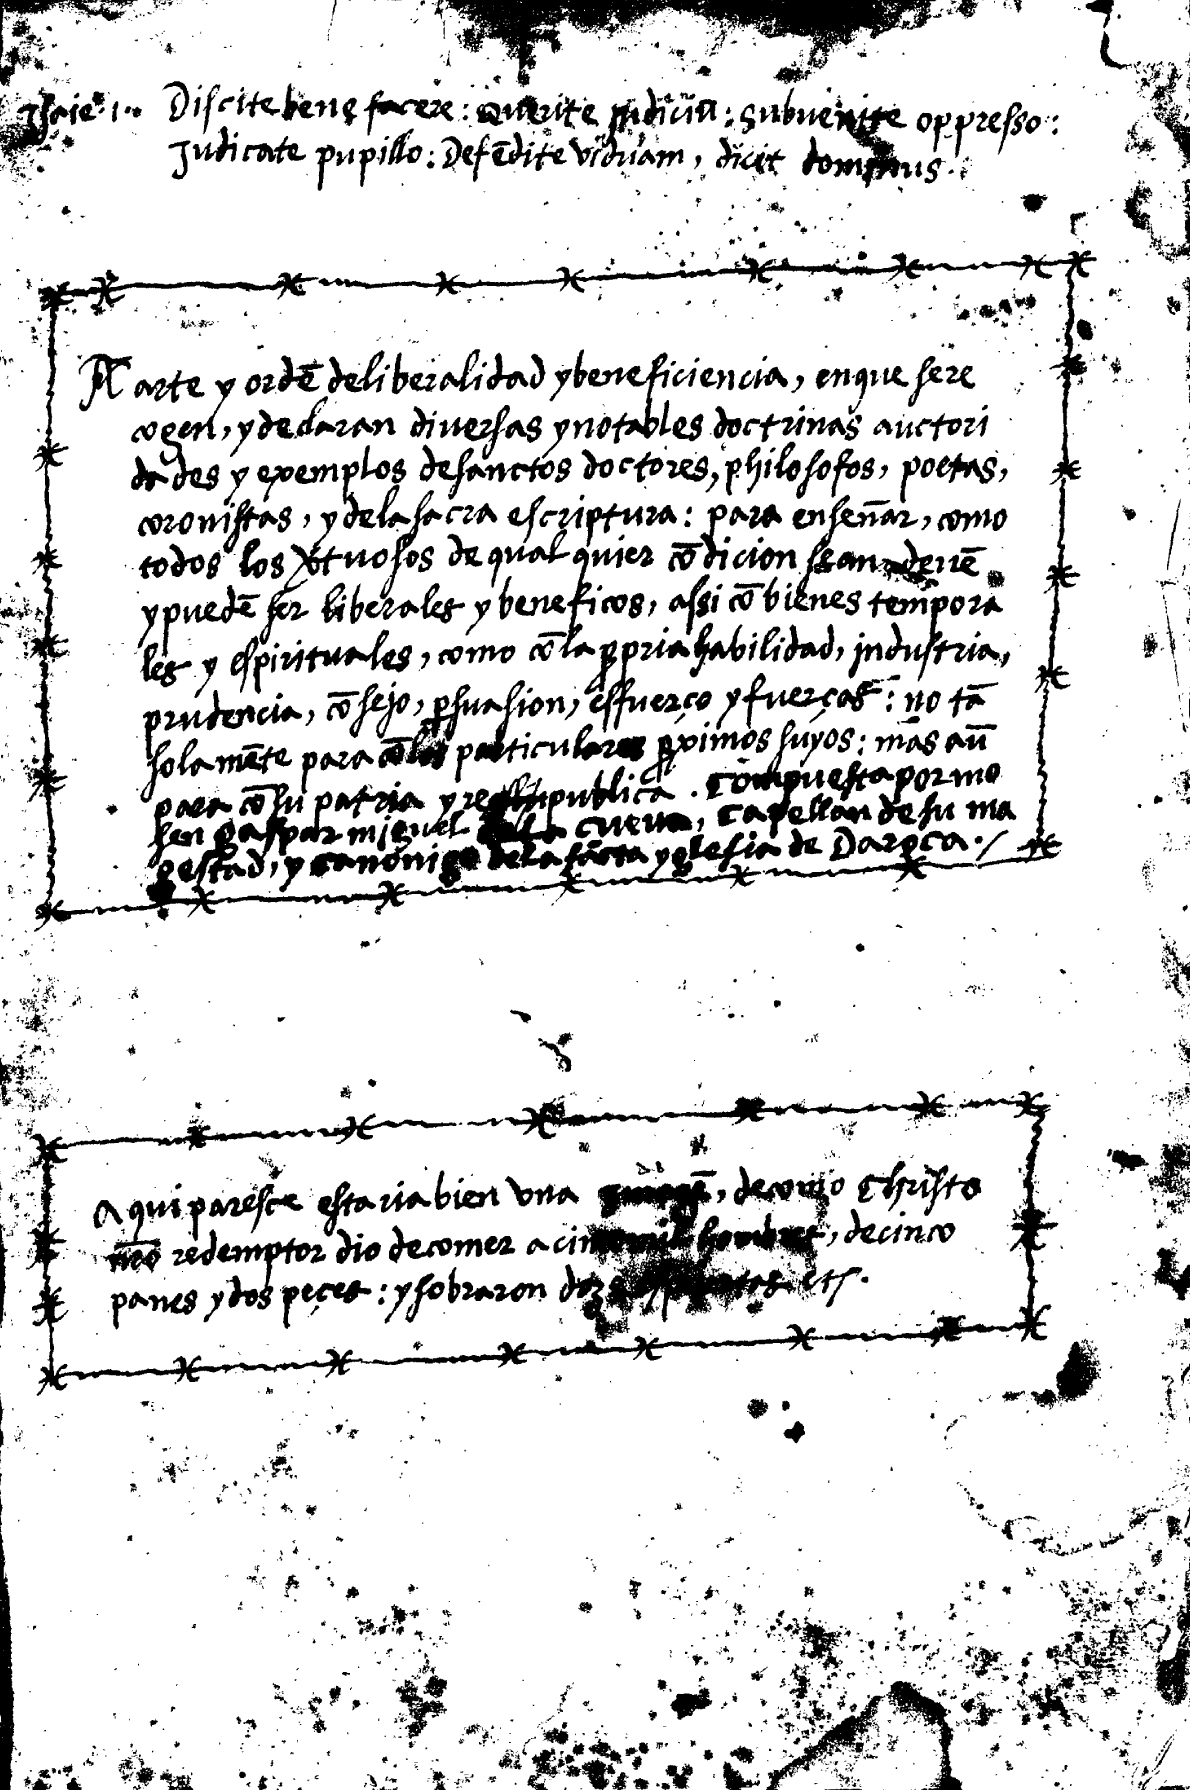 Jsaie .1.. Discite bene facere : Querite judiciū : Subuenite oppresso :
Judicate pupillo : Defēdite viduam, dicit dominus.
Arte y ordē de liberalidad y beneficiencia, en que se re
cogen, y declaran diuersas y notables doctrinas auctori
dades y exemplos de sanctos doctores, philosofos, poetas,
coronistas, y de la sacra escriptura : para enseñar, como
todos los de qual quier cōdicion sean deuē
y puedē ser liberales y beneficos, assi cō bienes tempora
les y espirituales, como cō la propria habilidad, jndustria,
prudencia, cōsejo, psuasion, esfuerço y fuerças : no tā
sola mēte para cō los particulares pximos suyos : mas aū
para cō su patria y republica. Compuesta por mo
sen gaspar miguel de la cueua, Capellan de su ma
gestad, y Canonigo de la sācta yglesia de Daroca ./
Aqui paresce estaria bien vna , de como Christo
nr̄o redemptor dio de comer a cinco mil hombres, de cinco
panes y dos peçes : y sobraron doze espuertas etc.